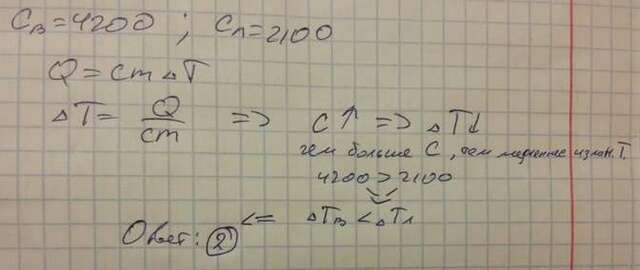 Cв=4200 ; Cл=2100
Q=cm△T
△T= Q/cm => C↑ => △T↓
чем больше C, чем медленнее измен. T.
4200>2100
Ответ: 2 <= △Tв <△Tл